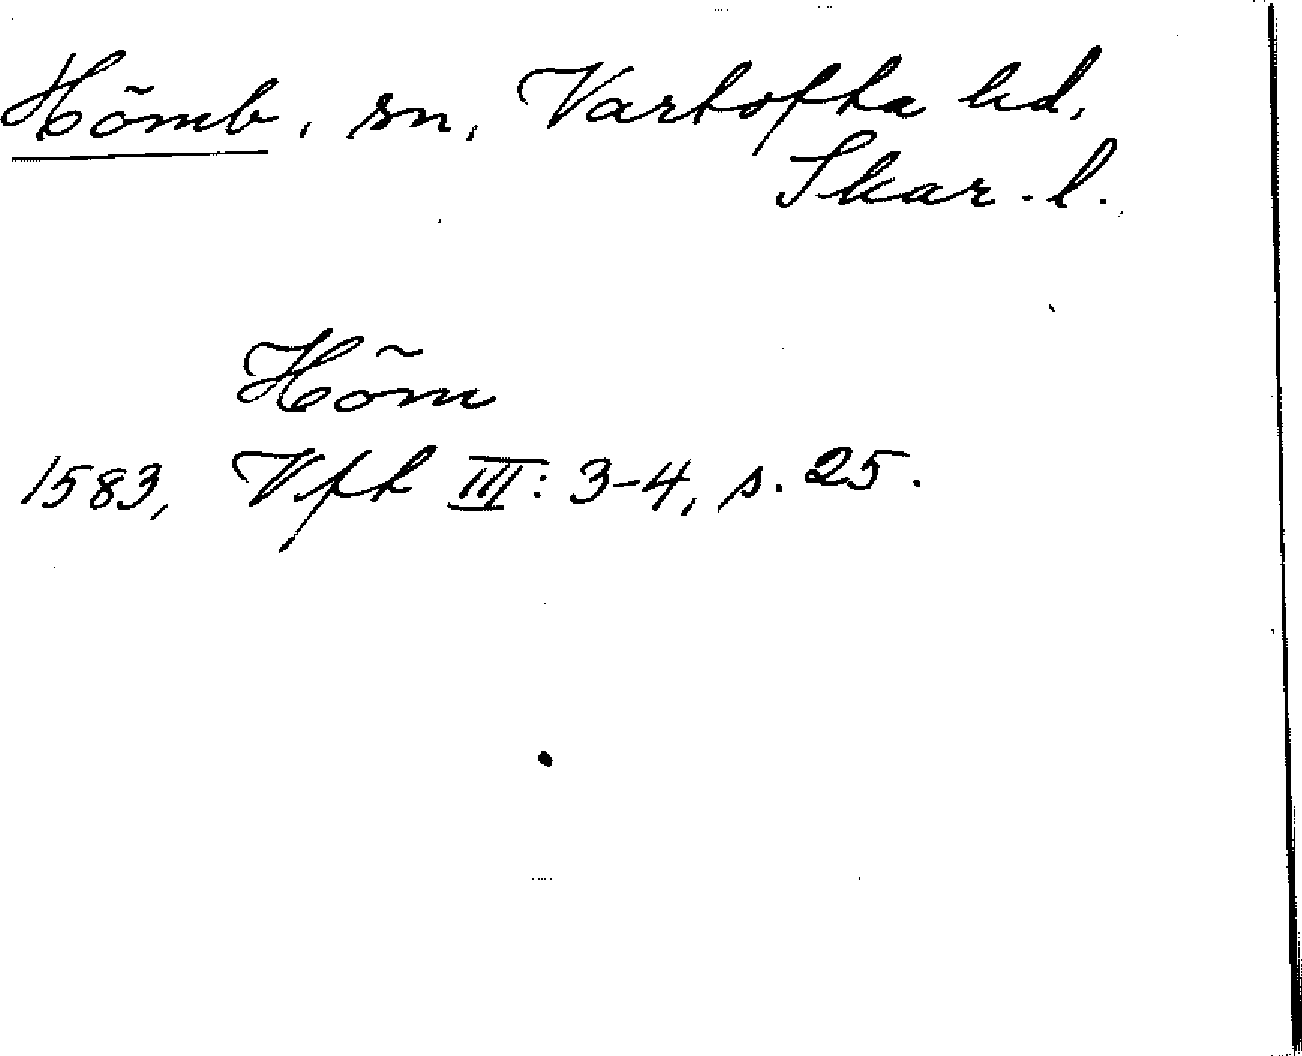 Hömb, sn, Vartofta hd,
Skar. l.
Höm
1583, Vfk III: 3-4, s. 25.